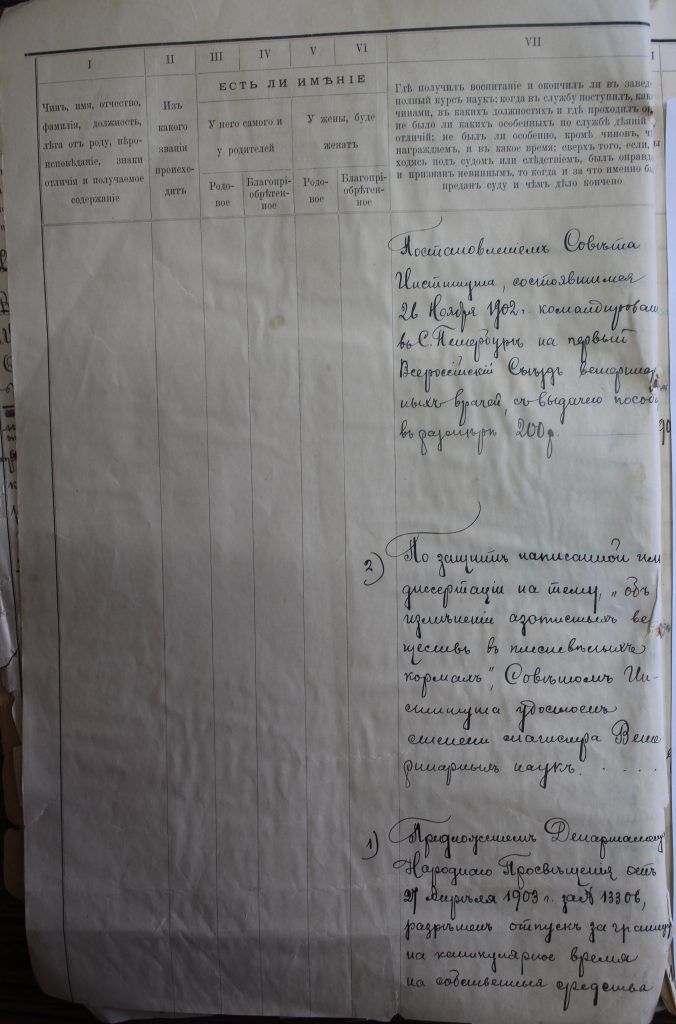 I II III IV V VI VII
I
ЕСТЬ ЛИ ИМѢНІЕ
Чинъ, имя, отчество,
фамилія, должность,
лѣта отъ роду, вѣро-
исповѣданіе, знаки
отличія и получаемое
содержаніе
Изъ
какого
званія
происхо-
дитъ
У него самого и
у родителей
У жены, буде
женатъ
Родо-
вое
Благопрі-
обрѣтен-
ное
Родо-
вое
Благопрі-
обрѣтен-
ное
Гдѣ получилъ воспитаніе и окончилъ ли въ завед
полный курсъ наукъ; когда въ службу поступилъ, как
чинами, въ какихъ должностяхъ и гдѣ проходилъ о
не было ли какихъ особенныхъ по службѣ дѣяній
отличій: не былъ ли особенно, кромѣ чиновъ, ч
награждаемъ, и въ какое время; сверхъ того, если,
ходясь подъ судомъ или слѣдствіемъ, былъ оправд
и признанъ невиннымъ, то когда и за что именно б
преданъ суду и чѣмъ дѣло кончено
Постановленіемъ Совѣта
Института, состоявшимся
26 Ноября 1902 г. командирован
въ С. Петербургъ на первый
Всероссійскій Съѣздъ ветеринар
ныхъ врачей, съ выдачею пособі
въ размѣрѣ 200 р.
2) По защитѣ написанной им
диссертаціи на тему, „объ
измѣненіи азотистыхъ ве
ществъ въ плесневѣлыхъ
кормахъ", Совѣтомъ Ин-
ститута удостоенъ
степени магистра Вете
ринарныхъ наукъ.....
1) Предложеніемъ Департамент
Народнаго Просвѣщенія отъ
27 Апрѣля 1903 г. за № 13306,
разрѣшенъ отпускъ за границу
на каникулярное время
на собственныя средства